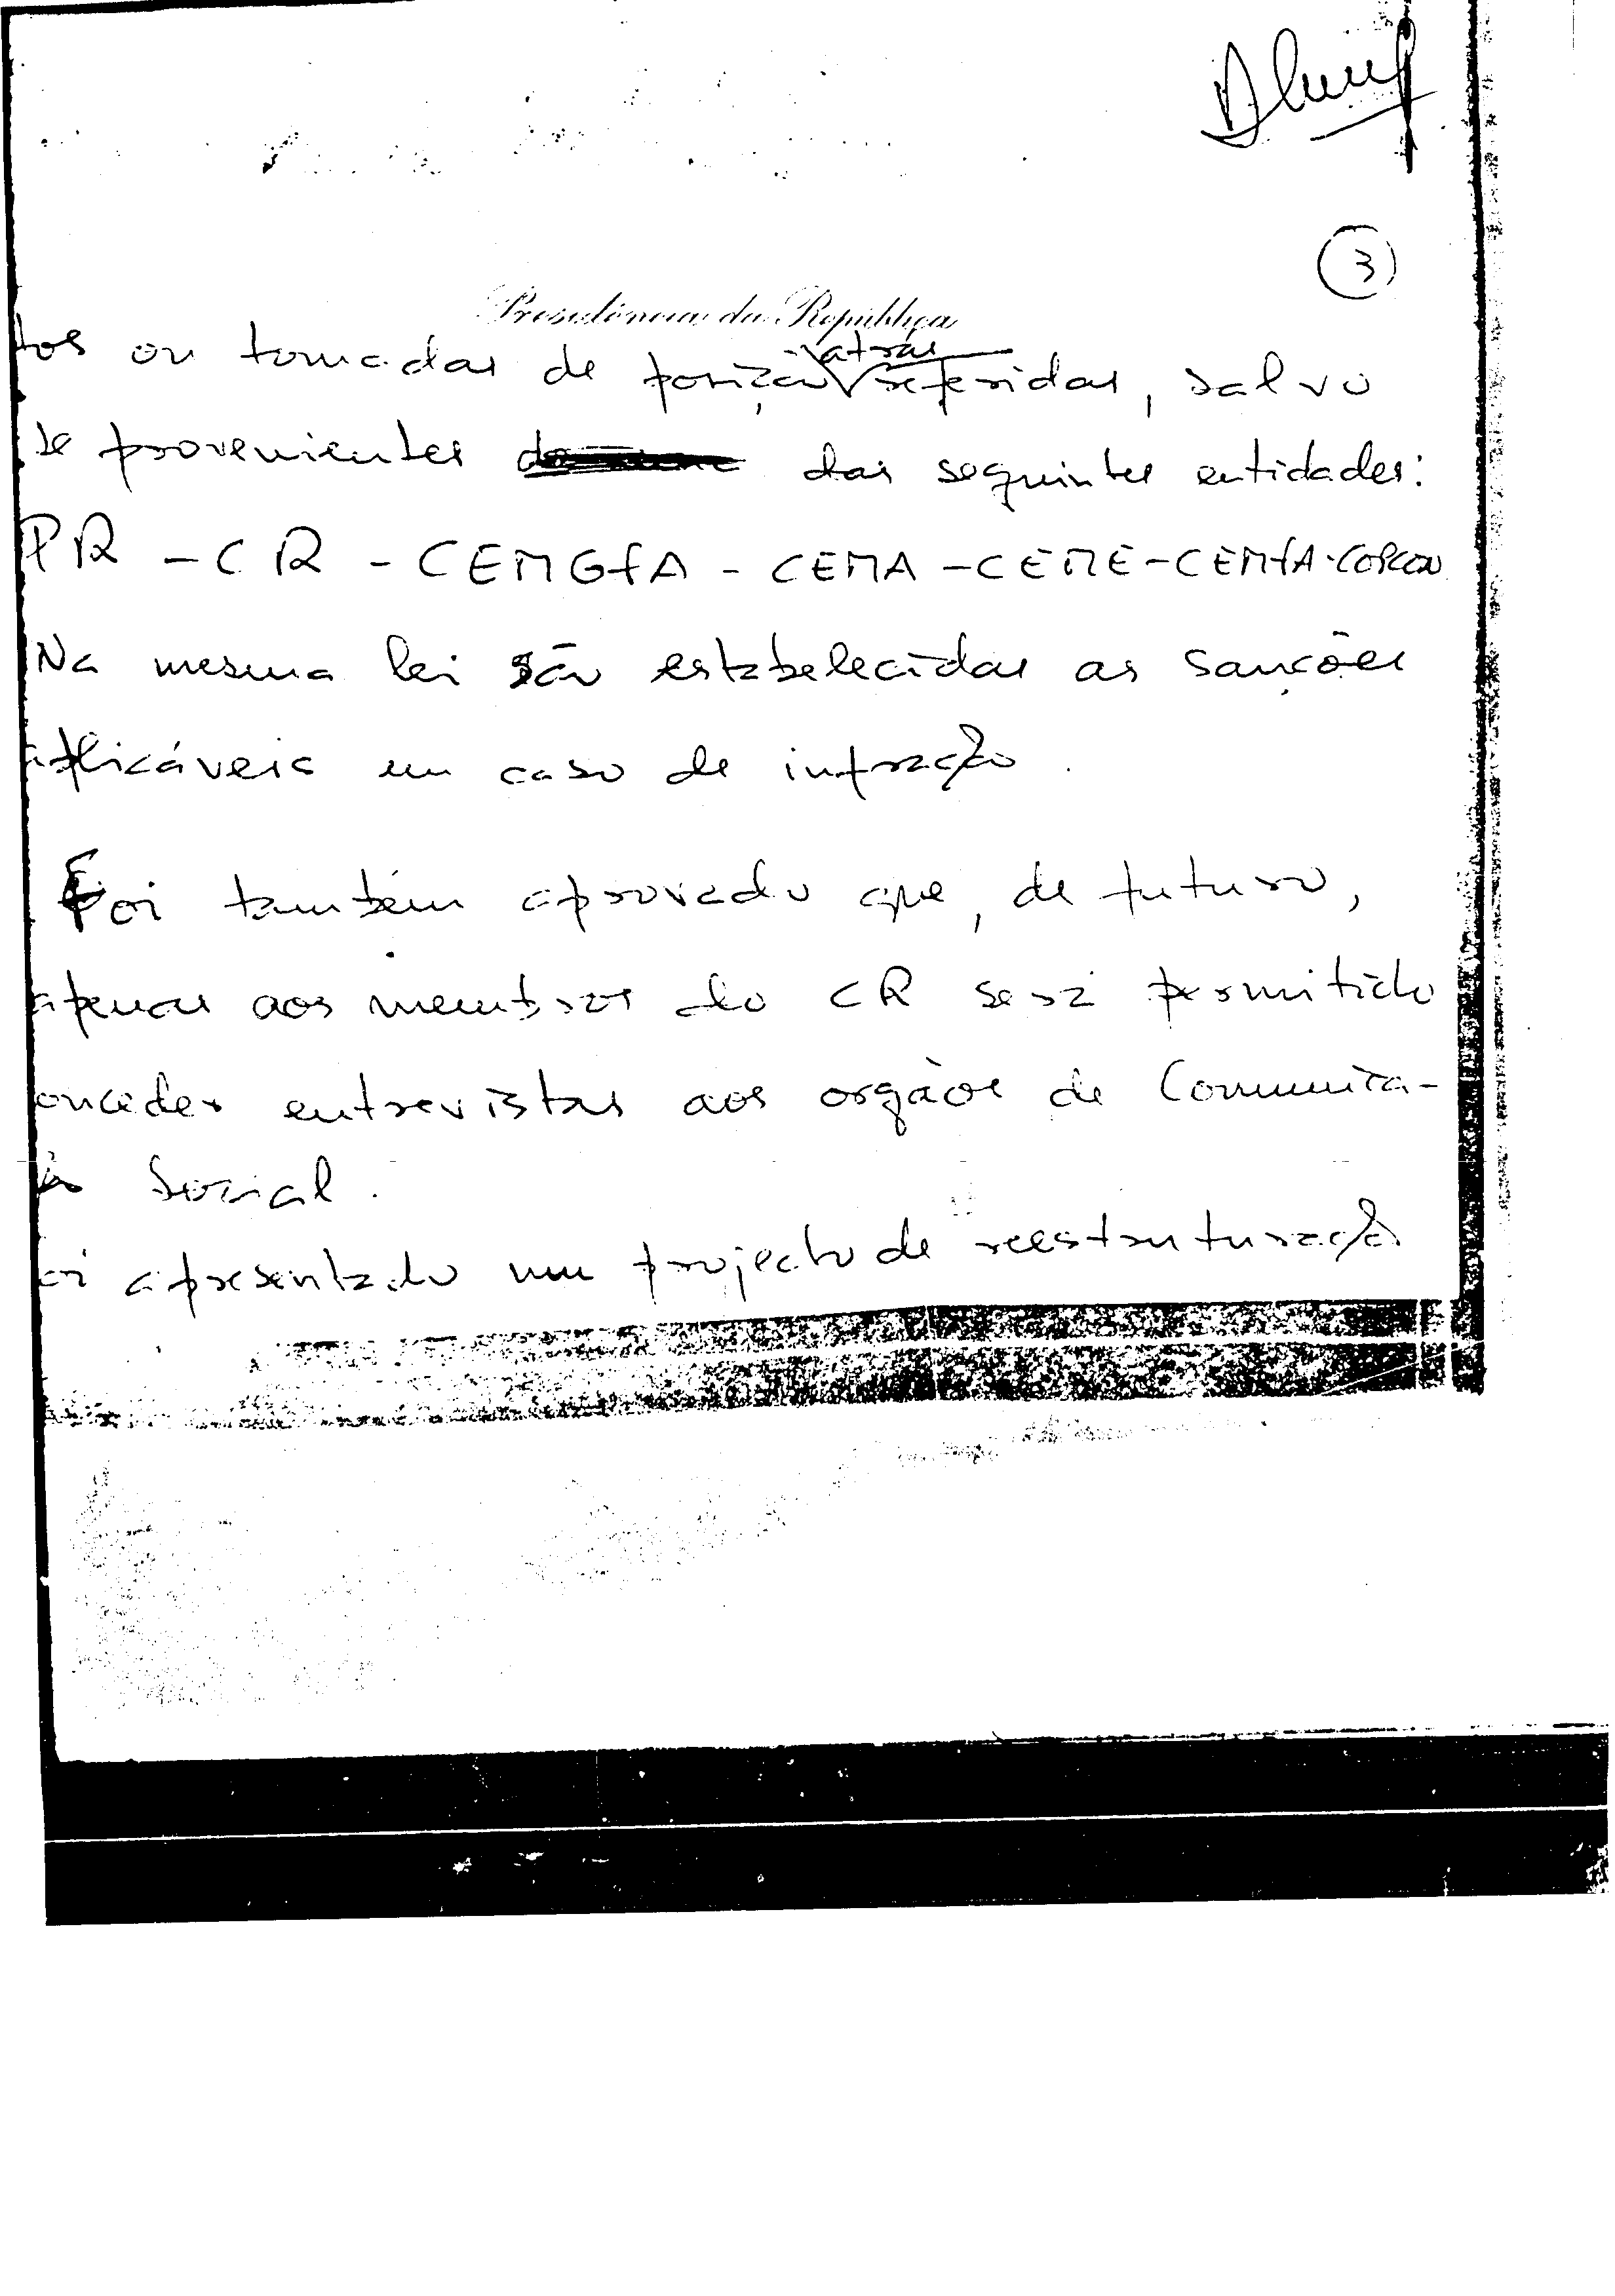 3
Presidência da República
tos ou tomadas de posição atrás referidas, salvo
se provenientes das seguintes entidades:
PR - CR - CEMGFA - CEMA - CEME - CEMFA - COPCON
Na mesma lei são estabelecidas as sanções
aplicáveis em caso de infração.
Foi também aprovado que, de futuro,
apenas aos membros do CR será permitido
onceder entrevistas aos orgãos de Comunica-
ão Social.
oi apresentado um projecto de reestruturação